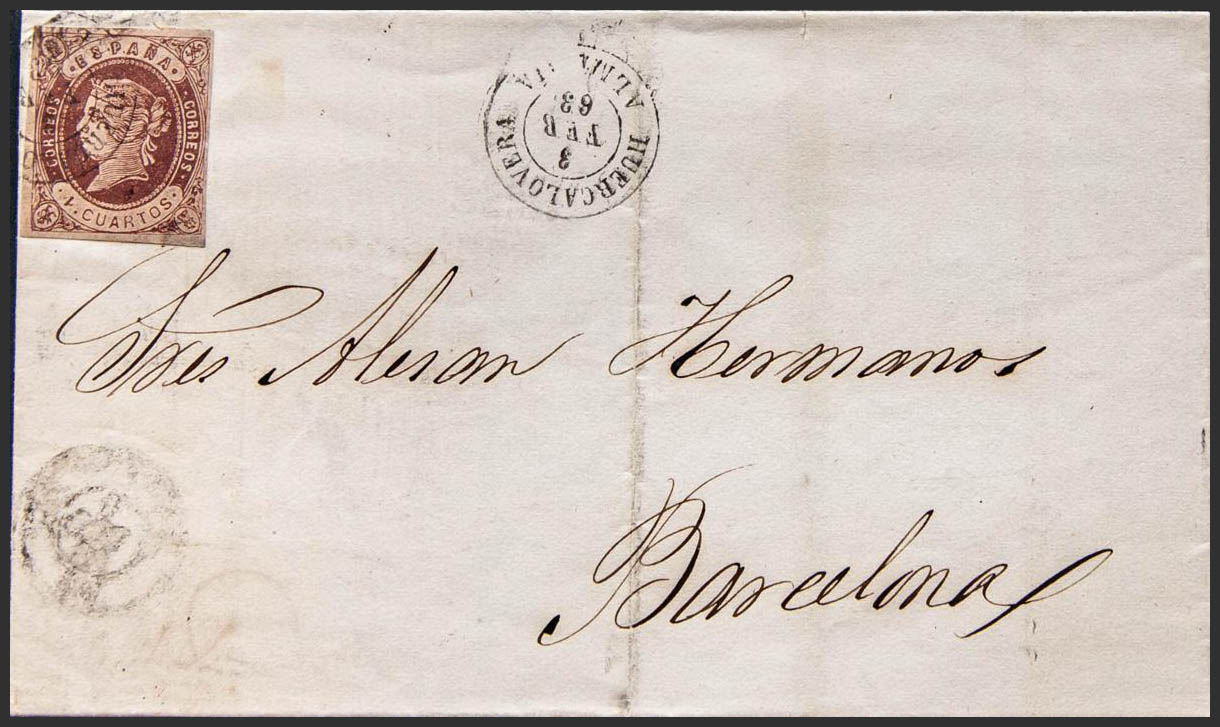 ESPAÑA
CORREOS
CORREOS
CUARTOS
HUERCALOVERA
3
FEB
63
Sres Alesan Hermanos
Barcelona